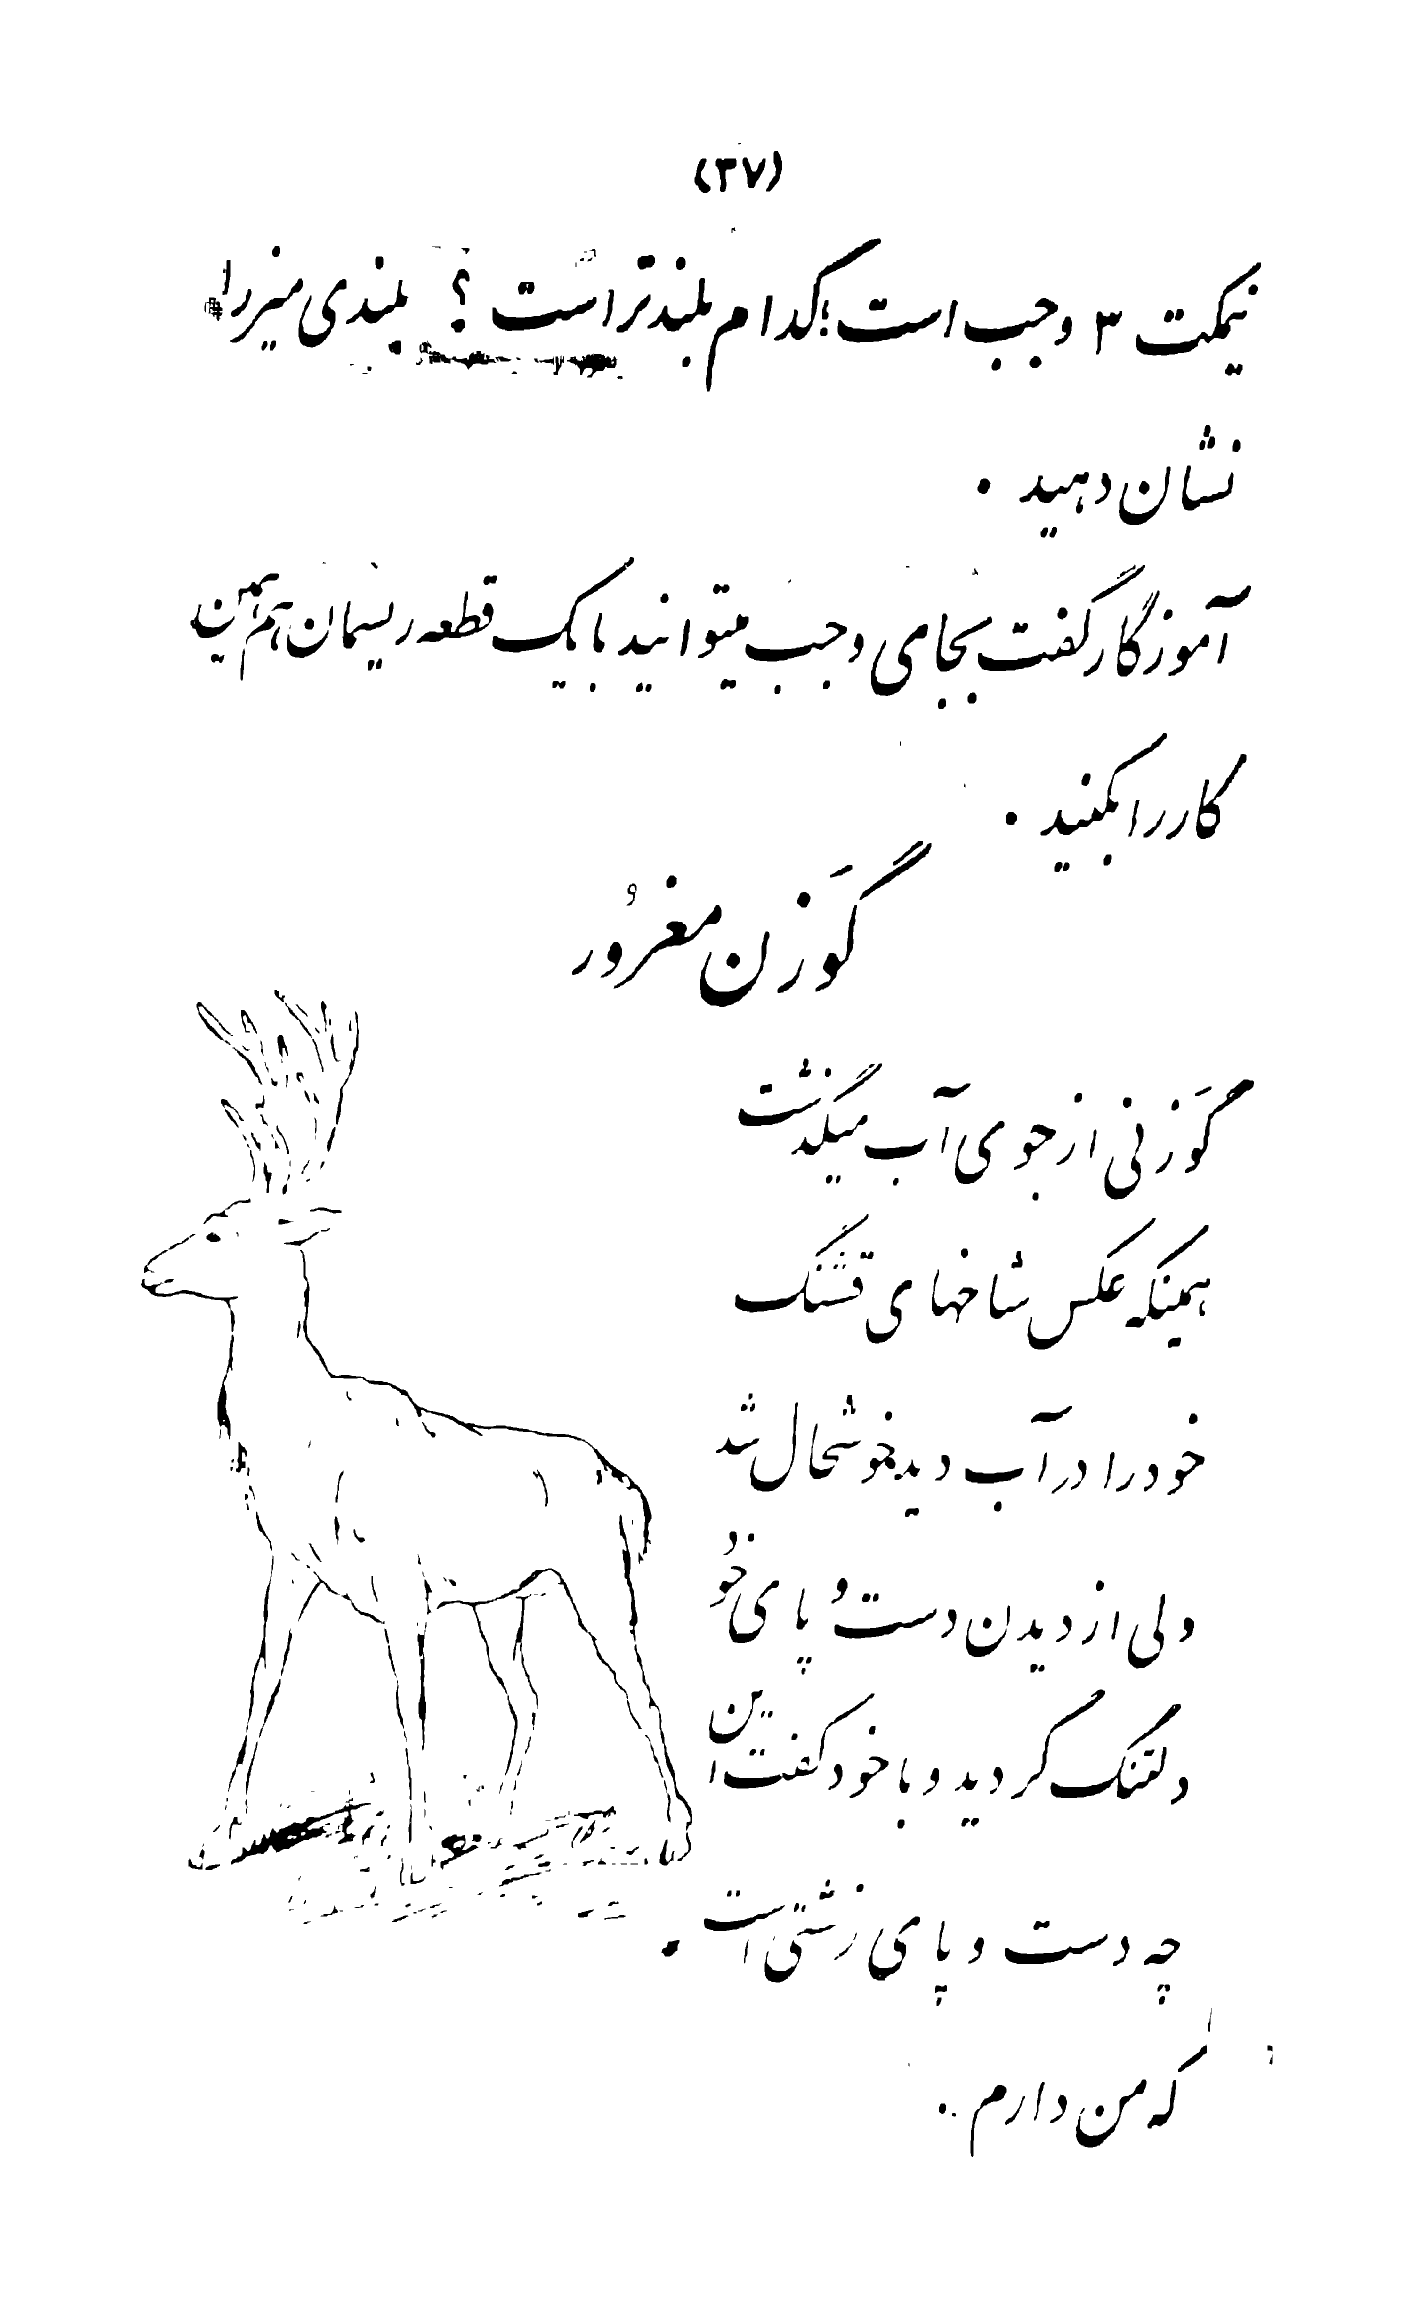 (۳۷)
نیمکت ۳ وجب است؛ کدام بلندتر است ؟ بلندی میز را
نشان دهید .
آموزگار گفت بجای وجب میتوانید با یک قطعه ریسمان هم همین
کار را بکنید .
گَوَزن مغرُور
گَوَزنی از جوی آب میگذشت
همینکه عکس شاخهای قشنگ
خود را در آب دید خوشحال شد
ولی از دیدن دست و پای خُود
دلتنگ گردید و با خود گفت این
چه دست و پای زشتی است .
که من دارم .